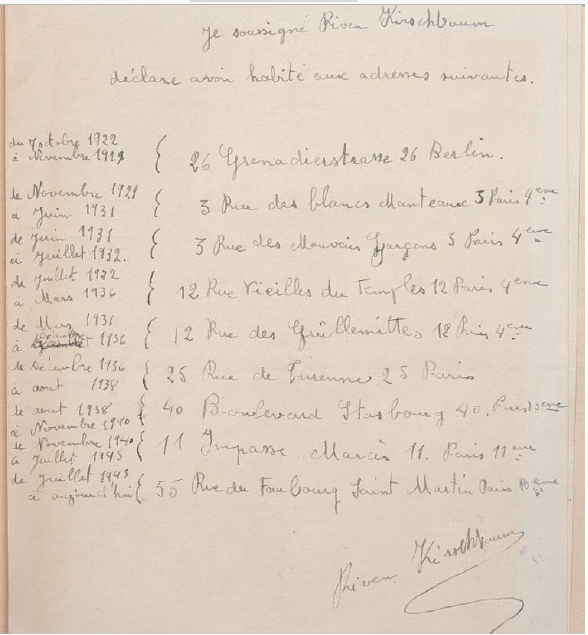 Je soussigné Riven Kirschbaum
déclare avoir habité aux adresses suivantes.
du 7 octobre 1922
à Novembre 1929 { 26 Grenadierstrasse 26 Berlin.
de Novembre 1929
à Juin 1931 { 3 Rue des blancs Manteaux 3 Paris 4eme
de Juin 1931
à Juillet 1932. { 3 Rue des Mauvais Garçons 3 Paris 4eme
de Juillet 1932
à Mars 1936 { 12 Rue Vieilles du Temples 12 Paris 4eme
de Mars 1936
à 1936 { 12 Rue des Guillemittes 12 Paris 4eme
de Décembre 1936
à aout 1938 { 25 Rue de Turenne 25 Paris
de aout 1938
à Novembre 1940 { 40 Boulevard Stasbourg 40. Paris
de Novembre 1940
à Juillet 1945 { 11 Impasse Marcès 11. Paris 11eme
de Juillet 1945
à aujourd'hui { 55 Rue du Faubourg Saint Martin Paris 10eme
Riven Kirschbaum